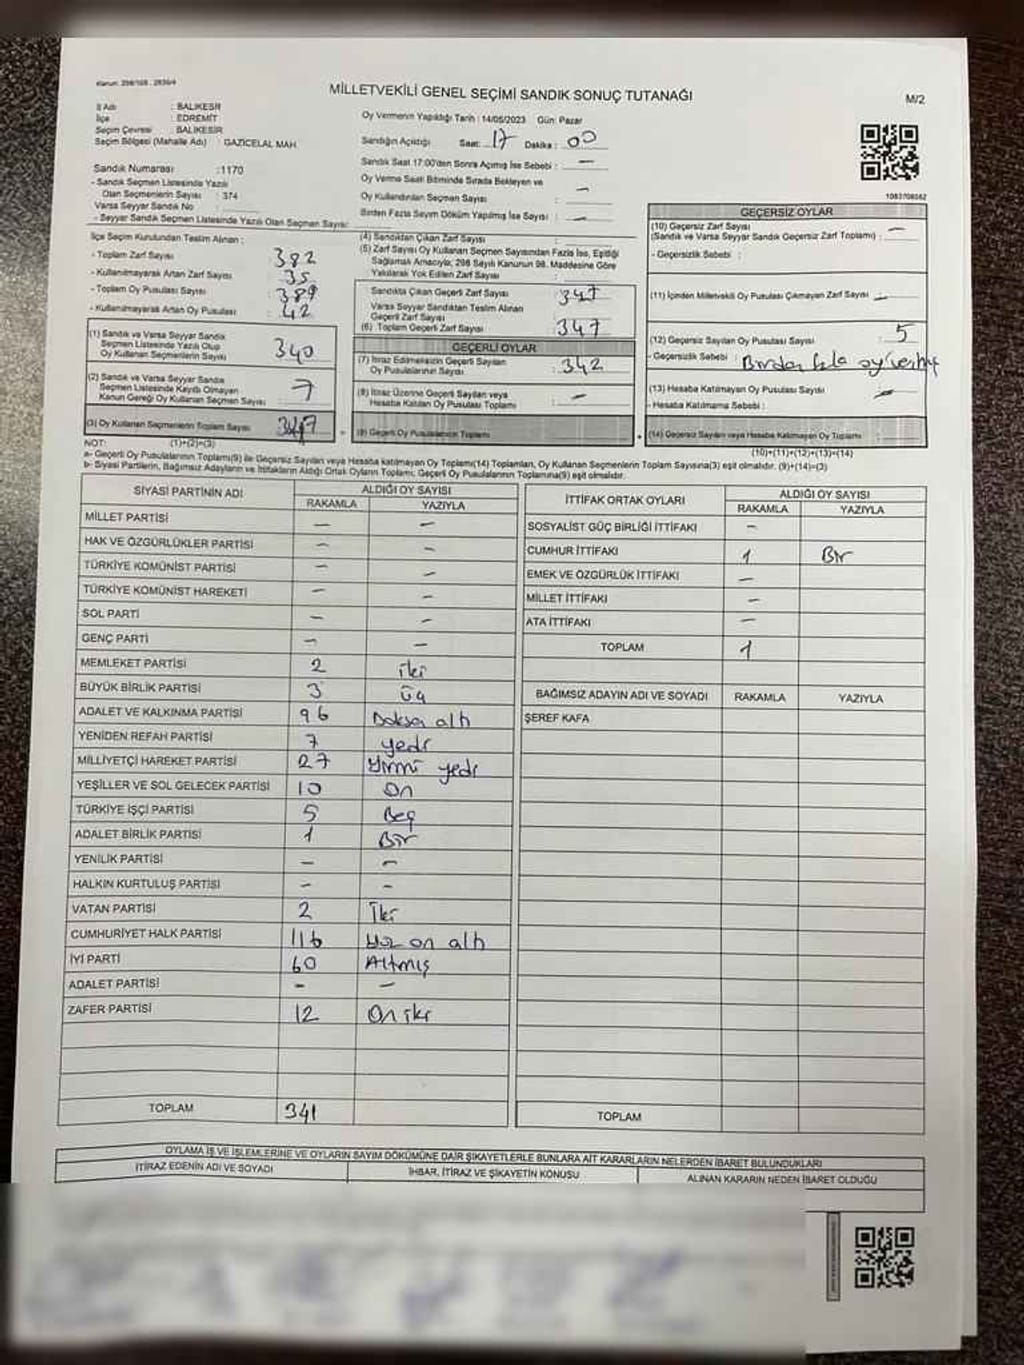 Kanun: 298/105 , 2839/4
MİLLETVEKİLİ GENEL SEÇİMİ SANDIK SONUÇ TUTANAĞI
M/2
İl Adı : BALIKESİR
İlçe : EDREMİT
Seçim Çevresi : BALIKESİR
Seçim Bölgesi (Mahalle Adı) : GAZİCELAL MAH.
Oy Vermenin Yapıldığı Tarih : 14/05/2023 Gün: Pazar
Sandığın Açıldığı Saat: 17 Dakika : 00
Sandık Saat 17:00'den Sonra Açılmış İse Sebebi : –
Oy Verme Saati Bitiminde Sırada Bekleyen ve
Oy Kullandırılan Seçmen Sayısı : –
Birden Fazla Sayım Döküm Yapılmış İse Sayısı : –
Sandık Numarası : 1170
- Sandık Seçmen Listesinde Yazılı
Olan Seçmenlerin Sayısı : 374
Varsa Seyyar Sandık No :
- Seyyar Sandık Seçmen Listesinde Yazılı Olan Seçmen Sayısı:
İlçe Seçim Kurulundan Teslim Alınan :
- Toplam Zarf Sayısı : 382
- Kullanılmayarak Artan Zarf Sayısı : 35
- Toplam Oy Pusulası Sayısı : 389
- Kullanılmayarak Artan Oy Pusulası : 42
(1) Sandık ve Varsa Seyyar Sandık
Seçmen Listesinde Yazılı Olup
Oy Kullanan Seçmenlerin Sayısı : 340
(2) Sandık ve Varsa Seyyar Sandık
Seçmen Listesinde Kayıtlı Olmayan
Kanun Gereği Oy Kullanan Seçmen Sayısı : 7
(3) Oy Kullanan Seçmenlerin Toplam Sayısı : 347
(4) Sandıktan Çıkan Zarf Sayısı :
(5) Zarf Sayısı Oy Kullanan Seçmen Sayısından Fazla İse, Eşitliği
Sağlamak Amacıyla; 298 Sayılı Kanunun 98. Maddesine Göre
Yakılarak Yok Edilen Zarf Sayısı :
Sandıkta Çıkan Geçerli Zarf Sayısı : 347
Varsa Seyyar Sandıktan Teslim Alınan
Geçerli Zarf Sayısı :
(6) Toplam Geçerli Zarf Sayısı : 347
GEÇERLİ OYLAR
(7) İtiraz Edilmeksizin Geçerli Sayılan
Oy Pusulalarının Sayısı : 342
(8) İtiraz Üzerine Geçerli Sayılan veya
Hesaba Katılan Oy Pusulası Toplamı : –
(9) Geçerli Oy Pusulalarının Toplamı
1083708582
GEÇERSİZ OYLAR
(10) Geçersiz Zarf Sayısı
(Sandık ve Varsa Seyyar Sandık Geçersiz Zarf Toplamı) : –
- Geçersizlik Sebebi :
(11) İçinden Milletvekili Oy Pusulası Çıkmayan Zarf Sayısı : –
(12) Geçersiz Sayılan Oy Pusulası Sayısı : 5
- Geçersizlik Sebebi : Birden fazla oy
(13) Hesaba Katılmayan Oy Pusulası Sayısı : –
- Hesaba Katılmama Sebebi :
(14) Geçersiz Sayılan veya Hesaba Katılmayan Oy Toplamı :
NOT: (1)+(2)=(3)
(10)+(11)+(12)+(13)=(14)
a- Geçerli Oy Pusulaları Toplamı(9) ile Geçersiz Sayılan veya Hesaba katılmayan Oy Toplamı(14) Toplamları, Oy Kullanan Seçmenlerin Toplam Sayısına(3) eşit olmalıdır. (9)+(14)=(3)
b- Siyasi Partilerin, Bağımsız Adayların ve İttifakların Aldığı Ortak Oyların Toplamı; Geçerli Oy Pusulalarının Toplamına(9) eşit olmalıdır.
SİYASİ PARTİNİN ADI ALDIĞI OY SAYISI
RAKAMLA YAZIYLA
MİLLET PARTİSİ – –
HAK VE ÖZGÜRLÜKLER PARTİSİ – –
TÜRKİYE KOMÜNİST PARTİSİ – –
TÜRKİYE KOMÜNİST HAREKETİ – –
SOL PARTİ – –
GENÇ PARTİ – –
MEMLEKET PARTİSİ 2 iki
BÜYÜK BİRLİK PARTİSİ 3 üç
ADALET VE KALKINMA PARTİSİ 96 Doksan altı
YENİDEN REFAH PARTİSİ 7 yedi
MİLLİYETÇİ HAREKET PARTİSİ 27 yirmi yedi
YEŞİLLER VE SOL GELECEK PARTİSİ 10 On
TÜRKİYE İŞÇİ PARTİSİ 5 Beş
ADALET BİRLİK PARTİSİ 1 Bir
YENİLİK PARTİSİ – –
HALKIN KURTULUŞ PARTİSİ – –
VATAN PARTİSİ 2 İki
CUMHURİYET HALK PARTİSİ 116 Yüz on altı
İYİ PARTİ 60 Altmış
ADALET PARTİSİ – –
ZAFER PARTİSİ 12 On iki
TOPLAM 341
İTTİFAK ORTAK OYLARI ALDIĞI OY SAYISI
RAKAMLA YAZIYLA
SOSYALİST GÜÇ BİRLİĞİ İTTİFAKI –
CUMHUR İTTİFAKI 1 Bir
EMEK VE ÖZGÜRLÜK İTTİFAKI –
MİLLET İTTİFAKI –
ATA İTTİFAKI –
TOPLAM 1
BAĞIMSIZ ADAYIN ADI VE SOYADI RAKAMLA YAZIYLA
ŞEREF KAFA
TOPLAM
OYLAMA İŞ VE İŞLEMLERİNE VE OYLARIN SAYIM DÖKÜMÜNE DAİR ŞİKAYETLERLE BUNLARA AİT KARARLARIN NELERDEN İBARET BULUNDUKLARI
İTİRAZ EDENİN ADI VE SOYADI İHBAR, İTİRAZ VE ŞİKAYETİN KONUSU ALINAN KARARIN NEDEN İBARET OLDUĞU